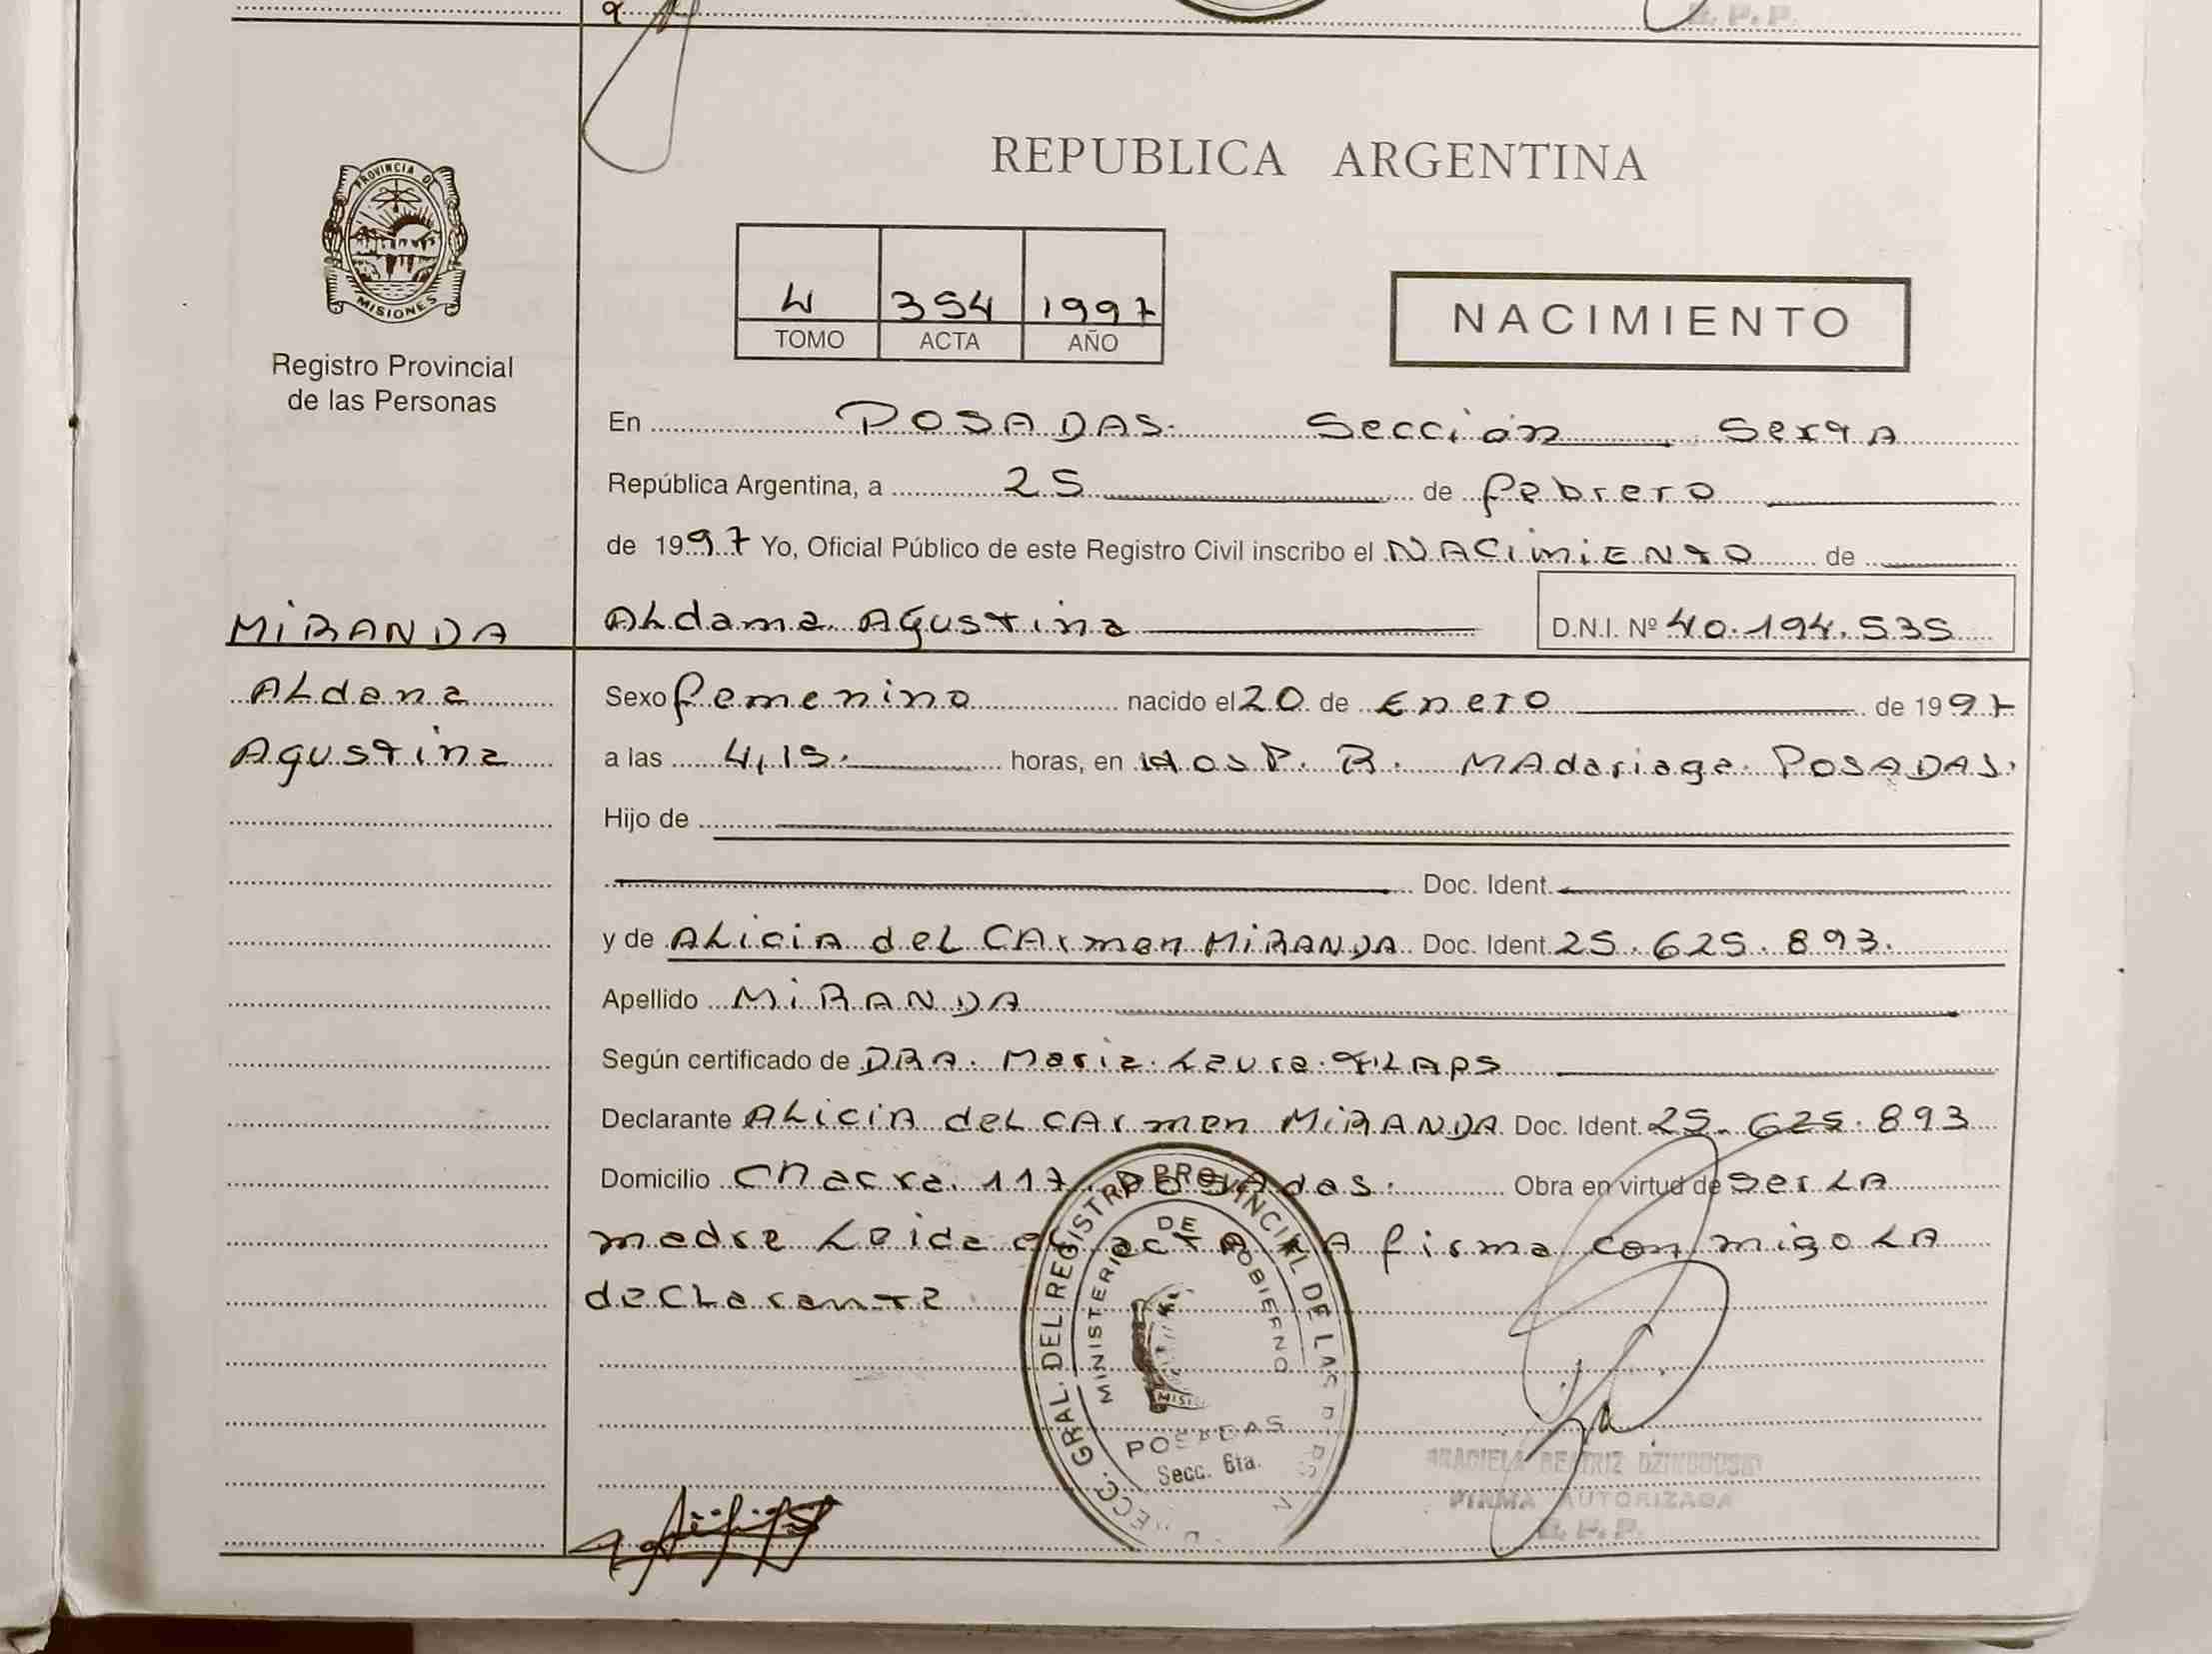 PROVINCIA DE
MISIONES
Registro Provincial
de las Personas
MiRANDA
ALdana
Agustina
REPUBLICA ARGENTINA
4 354 1997
TOMO ACTA AÑO
NACIMIENTO
En POSADAS. Sección Sexta
República Argentina, a 25 de febrero
de 1997 Yo, Oficial Público de este Registro Civil inscribo el NACimiENto de
ALdama Agustina D.N.I. Nº 40.194.535
Sexo femenino nacido el 20 de Enero de 1997
a las 4,15. horas, en HosP. R. MAdariaga POSADAS.
Hijo de
Doc. Ident.
y de ALiciA deL CArmen MiRANDA Doc. Ident. 25.625.893.
Apellido MiRANDA
Según certificado de DRA. Maria Laura
Declarante ALiciA deL CArmen MiRANDA Doc. Ident. 25.625.893
Domicilio Chacra 117 Posadas. Obra en virtud de ser LA
madre Leida el actA LA firma conmigo LA
decLarante
GRAL. DEL REGISTRO PROVINCIAL DE LAS
MINISTERIO DE GOBIERNO
POSADAS
Secc. 6ta.
GRACIELA BEATRIZ
FIRMA AUTORIZADA
R. P. P.